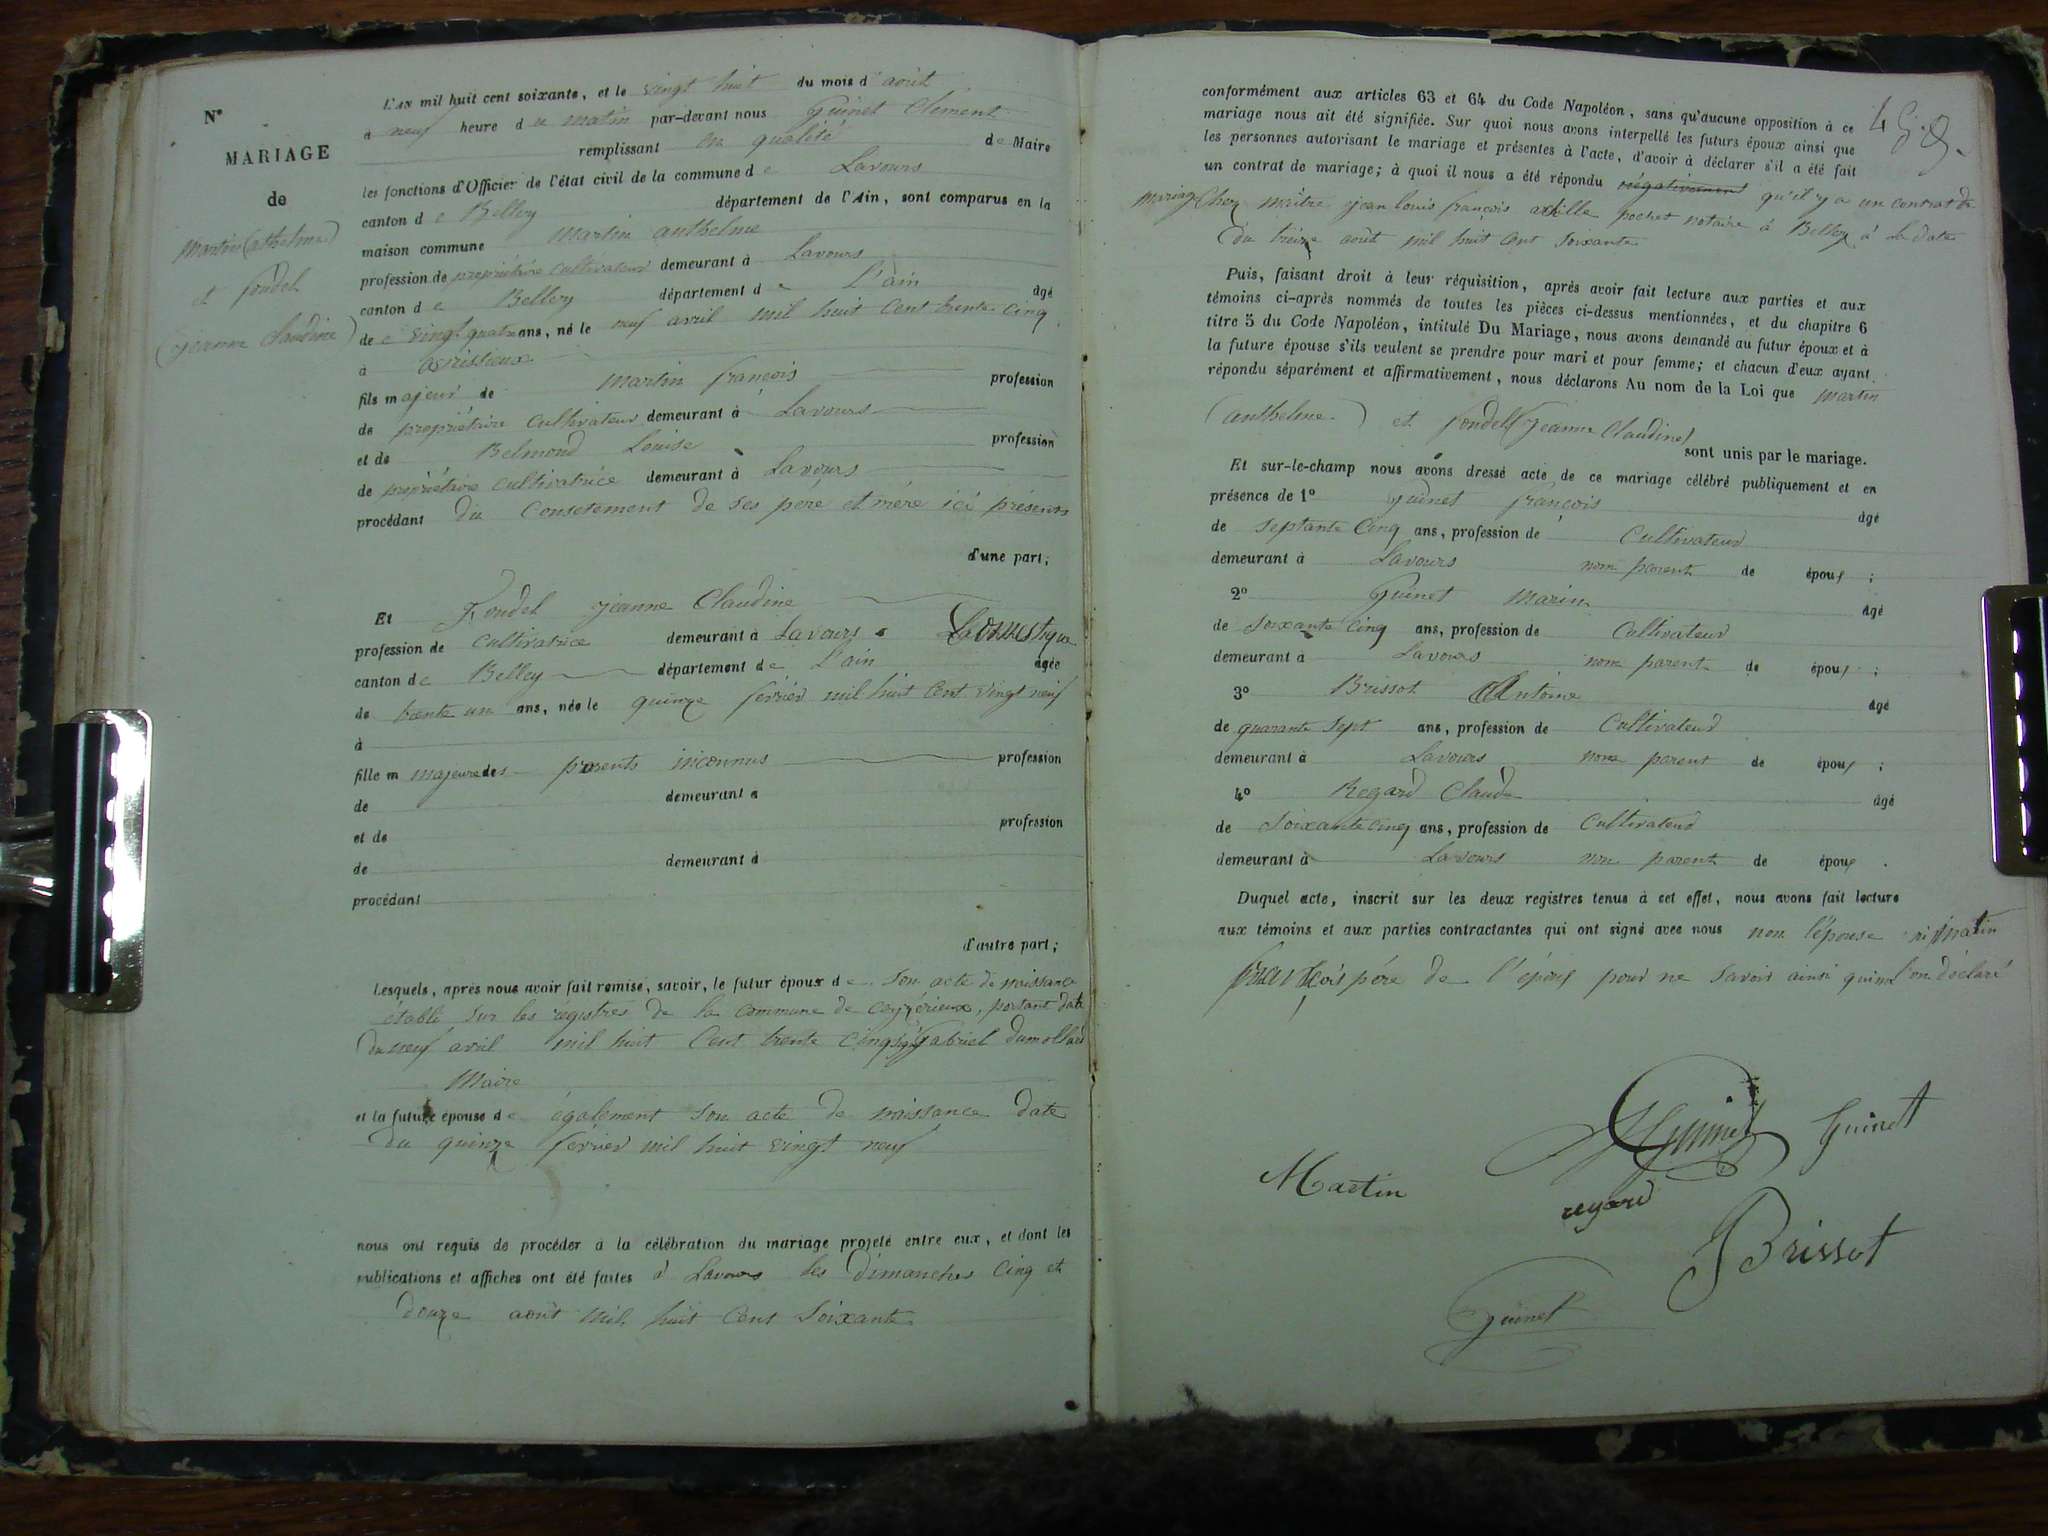 N°
MARIAGE
de
Martin (athelme)
et fondel
(jeanne claudine)
L'AN mil huit cent soixante, et le vingt huit du mois d'août
à neuf heure du matin par-devant nous Guinet Clément
remplissant en qualité de Maire
les fonctions d'Officier de l'état civil de la commune de Lavours
canton de Belley département de l'Ain, sont comparus en la
maison commune Martin anthelme
profession de propriétaire cultivateur demeurant à Lavours
canton de Belley département de L'ain âgé
de vingt quatre ans, né le neuf avril mil huit cent trente cinq
à
fils majeur de Martin françois profession
de propriétaire cultivateur demeurant à Lavours
et de Belmond Louise profession
de propriétaire cultivatrice demeurant à Lavours
procédant du consetement de ses père et mère ici présents
d'une part;
Et Fondel jeanne Claudine
profession de cultivatrice demeurant à Lavours
canton de Belley département de L'ain âgée
de trente un ans, née le quinze février mil huit cent vingt neuf
à
fille majeure des parents inconnus profession
de demeurant à
et de profession
de demeurant à
procédant
d'autre part;
Lesquels, après nous avoir fait remise, savoir, le futur époux de son acte de naissance
établi sur les régistres de la commune de ceyzérieux, portant date
du neuf avril mil huit cent trente cinq signé Gabriel dumollard
Maire
et la future épouse de également son acte de naissance date
du quinze février mil huit vingt neuf
nous ont requis de procéder à la célébration du mariage projeté entre eux, et dont les
publications et affiches ont été faites à Lavours les dimanches cinq et
douze août mil huit cent soixante
conformément aux articles 63 et 64 du Code Napoléon, sans qu'aucune opposition à ce
mariage nous ait été signifiée. Sur quoi nous avons interpellé les futurs époux ainsi que
les personnes autorisant le mariage et présentes à l'acte, d'avoir à déclarer s'il a été fait
un contrat de mariage; à quoi il nous a été répondu négativement qu'il y a un contrat de
mariage chez maître jean louis françois achille pochet notaire à Belley à la date
du treize août mil huit cent soixante
Puis, faisant droit à leur réquisition, après avoir fait lecture aux parties et aux
témoins ci-après nommés de toutes les pièces ci-dessus mentionnées, et du chapitre 6
titre 5 du Code Napoléon, intitulé Du Mariage, nous avons demandé au futur époux et à
la future épouse s'ils veulent se prendre pour mari et pour femme; et chacun d'eux ayant
répondu séparément et affirmativement, nous déclarons Au nom de la Loi que Martin
(anthelme) et fondel (Jeanne Claudine)
sont unis par le mariage.
Et sur-le-champ nous avons dressé acte de ce mariage célébré publiquement et en
présence de 1° Guinet françois âgé
de septante cinq ans, profession de Cultivateur
demeurant à Lavours non parent de époux ;
2° Guinet Marin âgé
de soixante cinq ans, profession de Cultivateur
demeurant à Lavours non parent de époux ;
3° Brissot Antoine âgé
de quarante sept ans, profession de Cultivateur
demeurant à Lavours non parent de époux ;
4° Regard Claude âgé
de soixante cinq ans, profession de Cultivateur
demeurant à Lavours non parent de époux .
Duquel acte, inscrit sur les deux registres tenus à cet effet, nous avons fait lecture
aux témoins et aux parties contractantes qui ont signé avec nous non l'épouse ni Martin
françois père de l'époux pour ne savoir ainsi qu'ils l'on déclaré
Guinet Guinet
Martin
regard
Brissot
Guinet